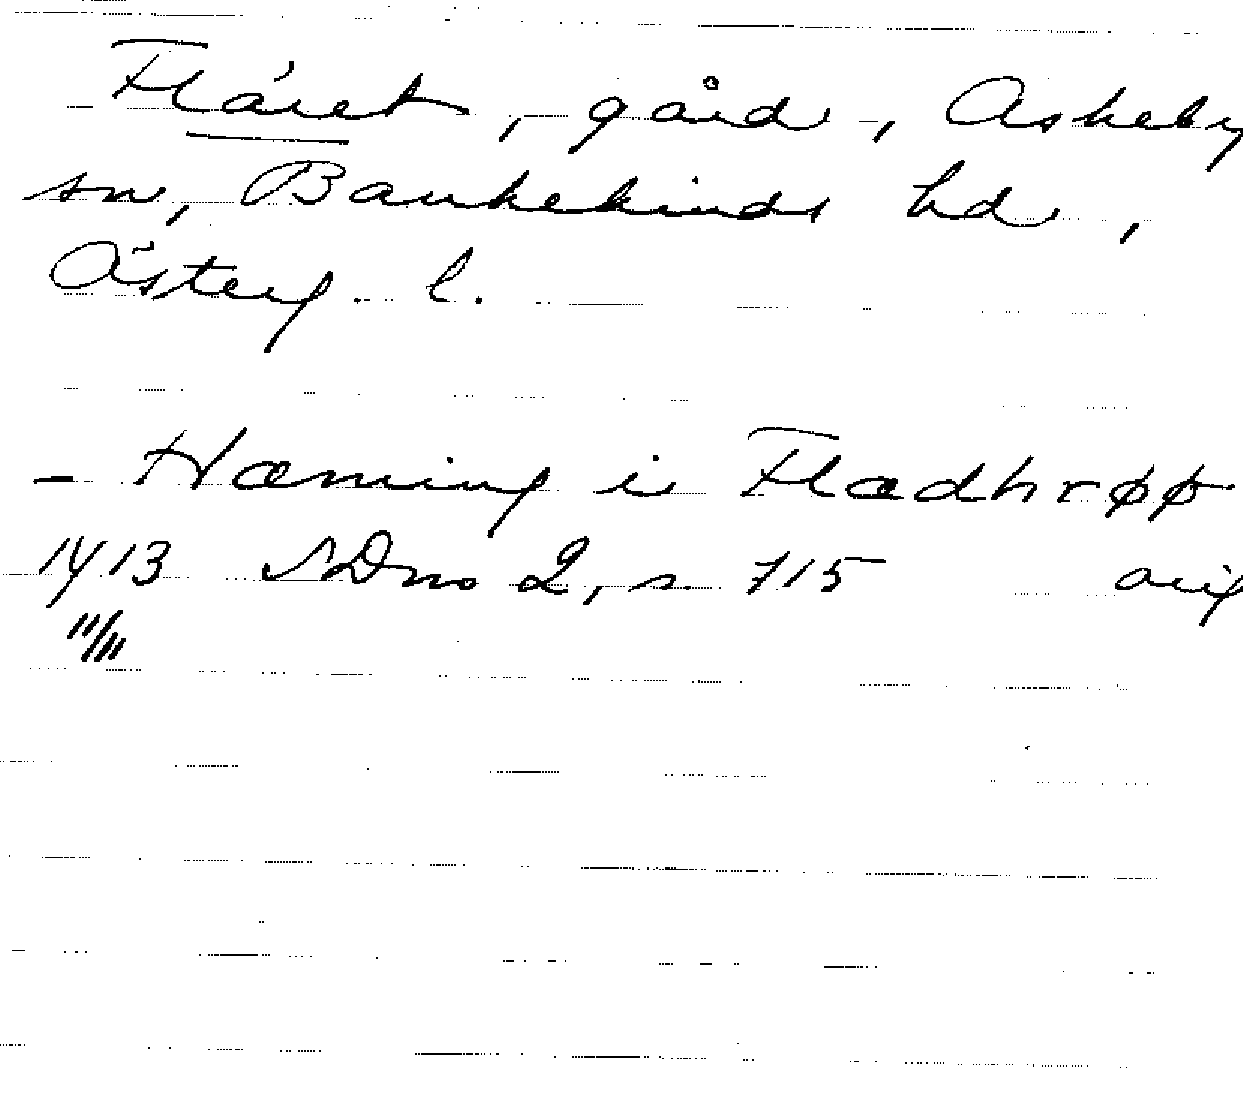 Fläret, gård, Askeby
sn, Bankekinds hd,
Österg. l.
- Hæming i Flædhrøø
1413 SDns 2, s. 715 orig
11/11